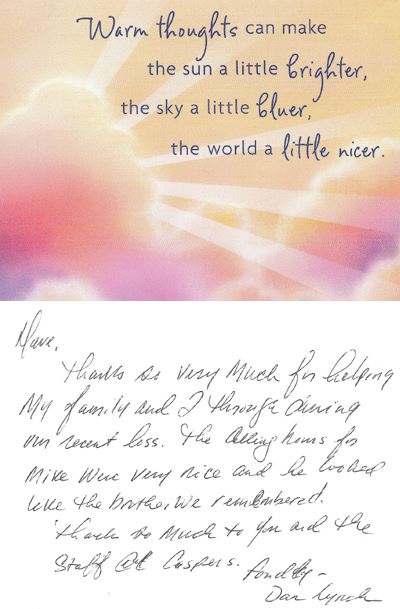 Warm thoughts can make
the sun a little brighter,
the sky a little bluer,
the world a little nicer.
Dave,
Thanks so very Much for helping
My family and I through during
our recent loss. The
for
Mike were very nice and he looked
like the brother we remembered.
Thanks so Much to you and the
Staff at Caspers.
Fondly -
Dan Lynch